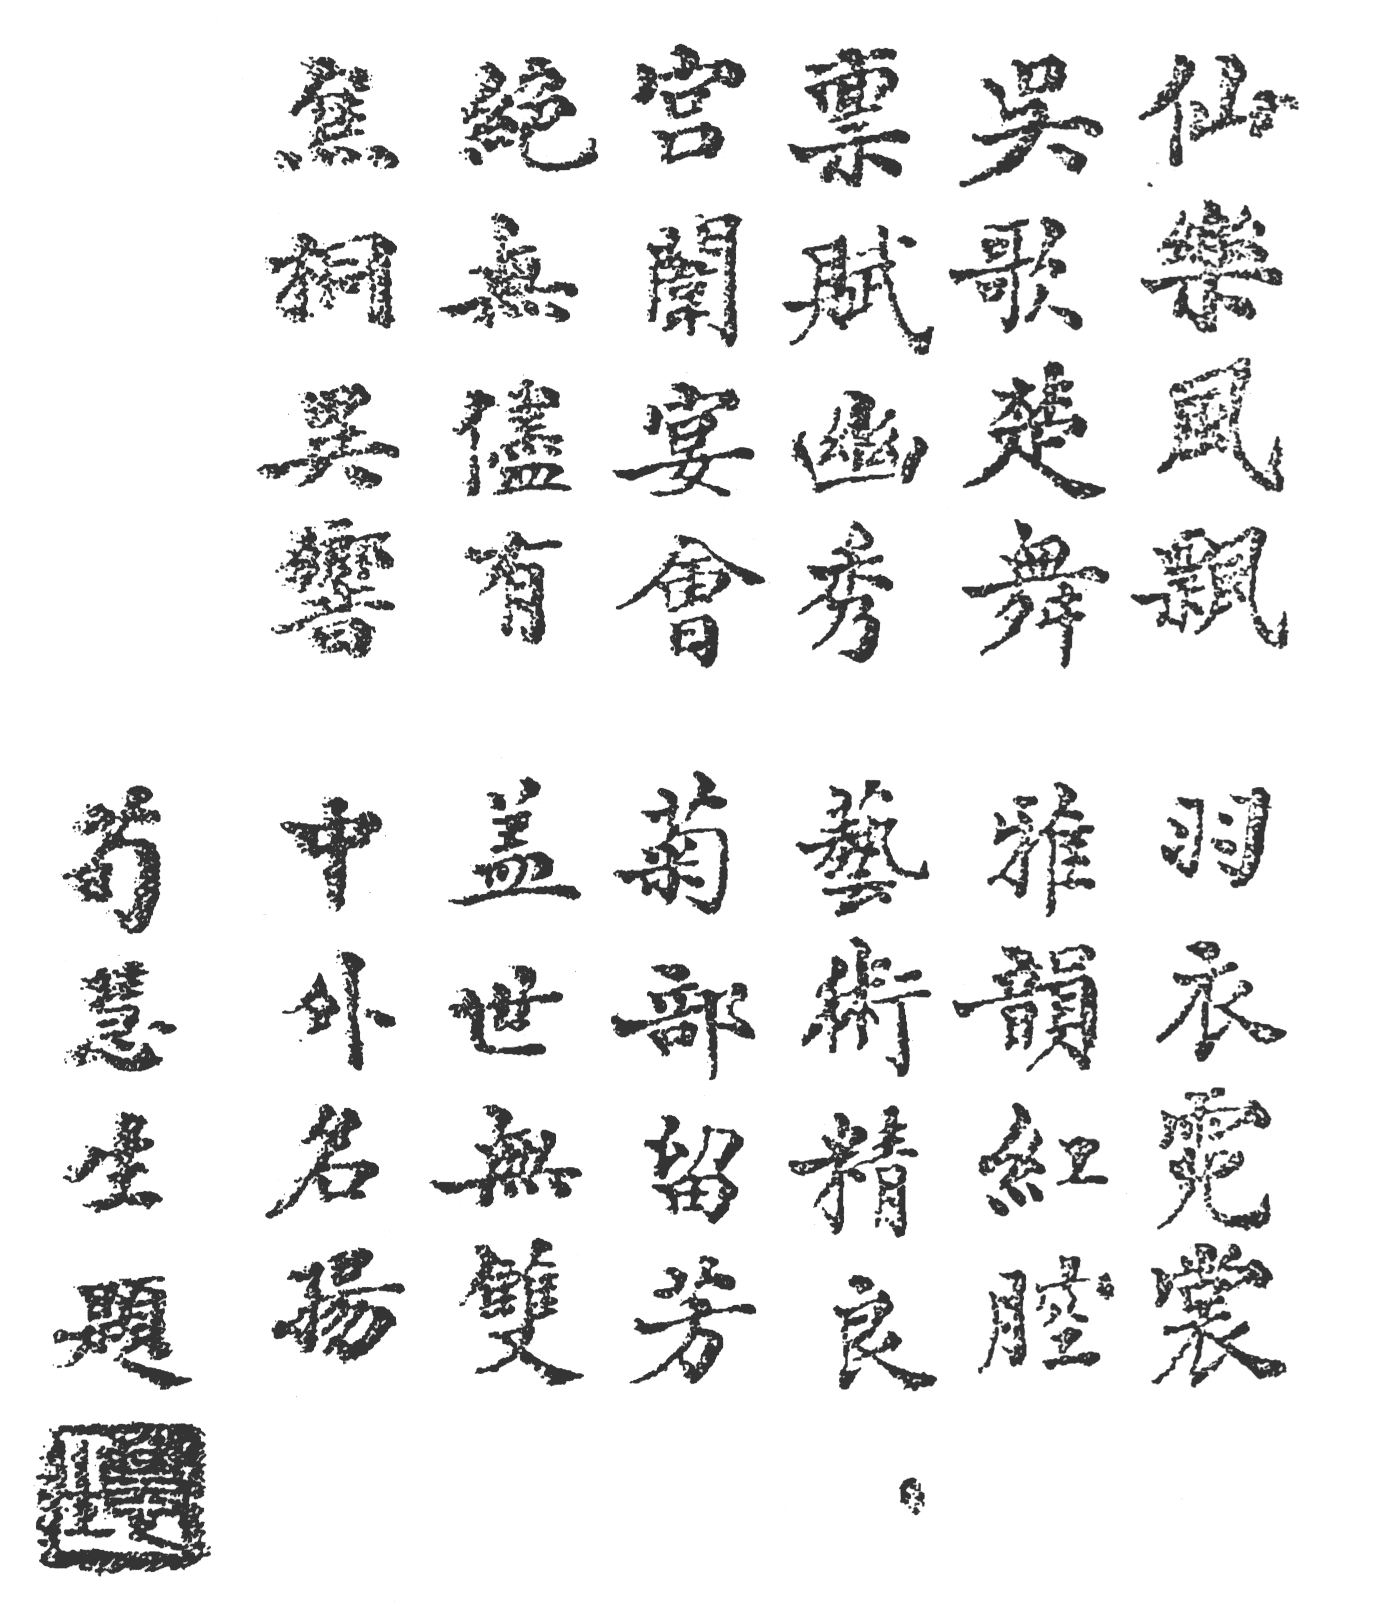 仙樂風飄 羽衣霓裳
吳歌楚舞 雅韻紅腔
稟賦幽秀 藝術精良
宮闈宴會 菊部留芳
絶無儘有 盖世無雙
焦桐異響 中外名揚
荀慧生題